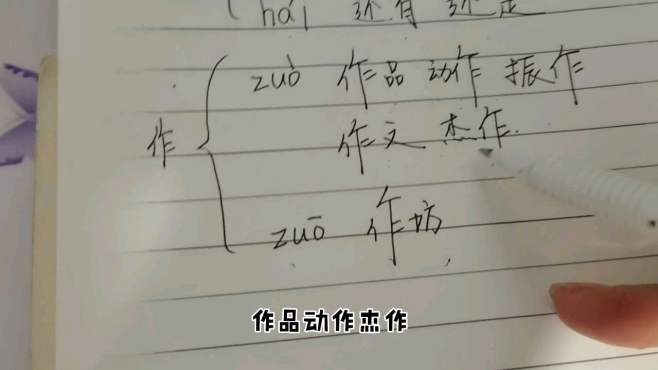 hái 还有 还是
作
zuò 作品 动作 振作
作文 杰作
zuō 作坊
作品动作杰作